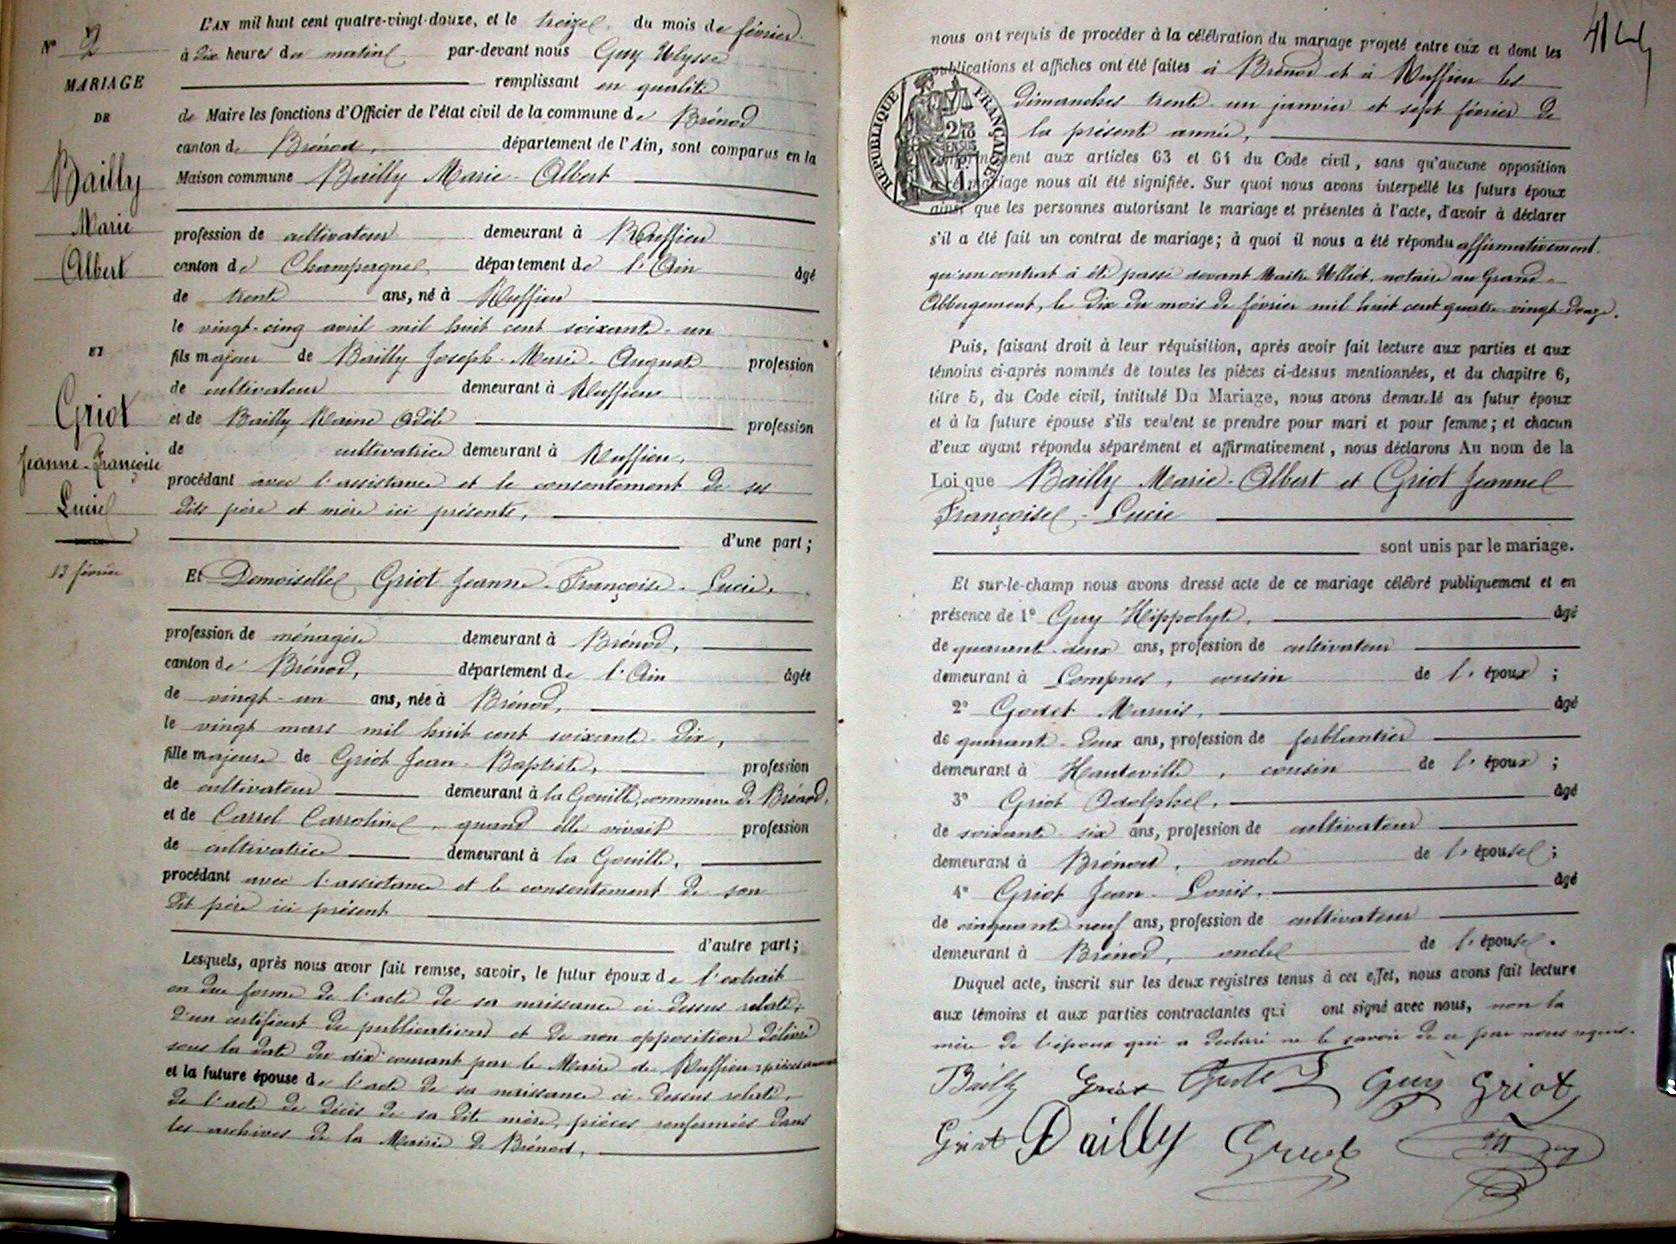 L'AN mil huit cent quatre-vingt-douze, et le treize du mois de février
N° 2
à dix heures du matin par-devant nous Guy Ulysse
MARIAGE
remplissant en qualité
DE
de Maire les fonctions d'Officier de l'état civil de la commune de Brénod
canton de Brénod, département de l'Ain, sont comparus en la
Bailly
Maison commune Bailly Marie-Albert
Marie
Albert
profession de cultivateur demeurant à Ruffieu
canton de Champagne, département de l'Ain âgé
de trente ans, né à Ruffieu
le vingt-cinq avril mil huit cent soixante-un
ET
fils majeur de Bailly Joseph-Marie-Auguste profession
de cultivateur demeurant à Ruffieu
Griot
et de Bailly Marie Adèle profession
Jeanne-Françoise
de cultivatrice demeurant à Ruffieu,
Lucie
procédant avec l'assistance et le consentement de ses
dits père et mère ici présents,
d'une part;
13 février
Et Demoiselle Griot Jeanne-Françoise-Lucie,
profession de ménagère demeurant à Brénod,
canton de Brénod, département de l'Ain âgée
de vingt-un ans, née à Brénod,
le vingt mars mil huit cent soixante-dix,
fille majeure de Griot Jean-Baptiste, profession
de cultivateur demeurant à la Gouille, commune de Brénod,
et de Carrel Carroline, quand elle vivait profession
de cultivatrice demeurant à la Gouille,
procédant avec l'assistance et le consentement de son
dit père ici présent
d'autre part;
Lesquels, après nous avoir fait remise, savoir, le futur époux de l'extrait
en due forme de l'acte de sa naissance ci-dessus relaté;
d'un certificat de publications et de non opposition délivré
sous la date du dix courant par le Maire de Ruffieu
et la future épouse de l'acte de sa naissance ci-dessus relaté,
de l'acte de décès de sa dite mère, pièces renfermées dans
les archives de la Mairie de Brénod,
nous ont requis de procéder à la célébration du mariage projeté entre eux et dont les
publications et affiches ont été faites à Brénod et à Ruffieu les
dimanches trente-un janvier et sept février de
la présente année,
RÉPUBLIQUE FRANÇAISE
conformément aux articles 63 et 64 du Code civil, sans qu'aucune opposition
à ce mariage nous ait été signifiée. Sur quoi nous avons interpellé les futurs époux
ainsi que les personnes autorisant le mariage et présentes à l'acte, d'avoir à déclarer
s'il a été fait un contrat de mariage; à quoi il nous a été répondu affirmativement
qu'un contrat a été passé devant Maître notaire au Grand-
Abbergement, le dix du mois de février mil huit cent quatre-vingt-douze.
Puis, faisant droit à leur réquisition, après avoir fait lecture aux parties et aux
témoins ci-après nommés de toutes les pièces ci-dessus mentionnées, et du chapitre 6,
titre 5, du Code civil, intitulé Du Mariage, nous avons demandé au futur époux
et à la future épouse s'ils veulent se prendre pour mari et pour femme; et chacun
d'eux ayant répondu séparément et affirmativement, nous déclarons Au nom de la
Loi que Bailly Marie-Albert et Griot Jeanne
Françoise-Lucie
sont unis par le mariage.
Et sur-le-champ nous avons dressé acte de ce mariage célébré publiquement et en
présence de 1° Guy Hippolyte, âgé
de quarante-deux ans, profession de cultivateur
demeurant à Lompnes, cousin de l'époux;
2° Godet Marius, âgé
de quarante-deux ans, profession de ferblantier
demeurant à Hauteville, cousin de l'époux;
3° Griot Adolphe, âgé
de soixante-six ans, profession de cultivateur
demeurant à Brénod, oncle de l'épouse;
4° Griot Jean-Louis, âgé
de cinquante neuf ans, profession de cultivateur
demeurant à Brénod, oncle de l'épouse.
Duquel acte, inscrit sur les deux registres tenus à cet effet, nous avons fait lecture
aux témoins et aux parties contractantes qui ont signé avec nous, non la
mère de l'époux qui a déclaré ne le savoir de ce par nous requis.
Bailly Griot Guy Griot
Griot Bailly Griot Guy